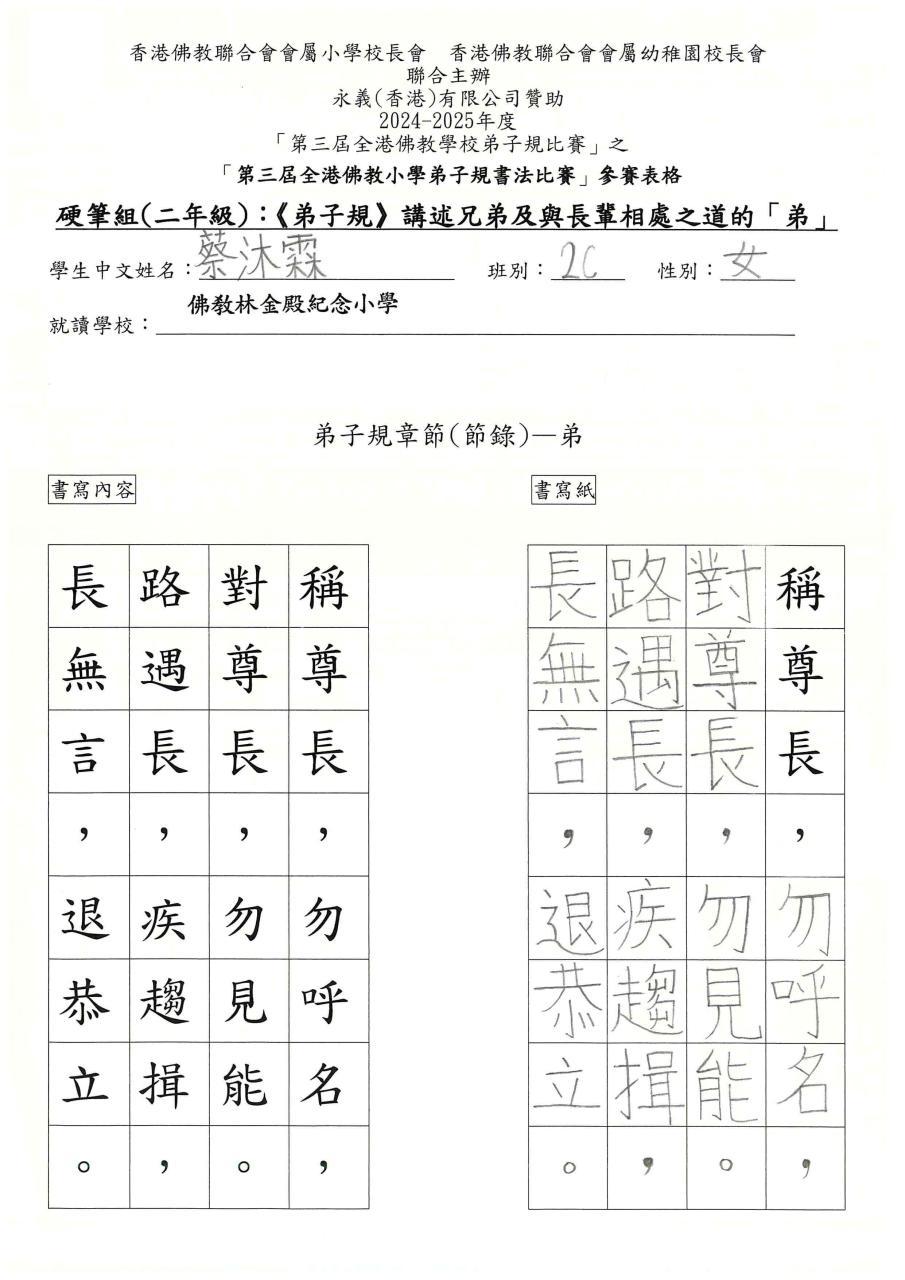 香港佛教聯合會會屬小學校長會　香港佛教聯合會會屬幼稚園校長會
聯合主辦
永義(香港)有限公司贊助
2024-2025年度
「第三屆全港佛教學校弟子規比賽」之
「第三屆全港佛教小學弟子規書法比賽」參賽表格
硬筆組(二年級)：《弟子規》講述兄弟及與長輩相處之道的「弟」
學生中文姓名：蔡沐霖　班別：2C　性別：女
佛教林金殿紀念小學
就讀學校：
弟子規章節(節錄)—弟
書寫內容
稱尊長，勿呼名，
對尊長，勿見能。
路遇長，疾趨揖，
長無言，退恭立。
書寫紙
稱尊長，勿呼名，
對尊長，勿見能。
路遇長，疾趨揖，
長無言，退恭立。